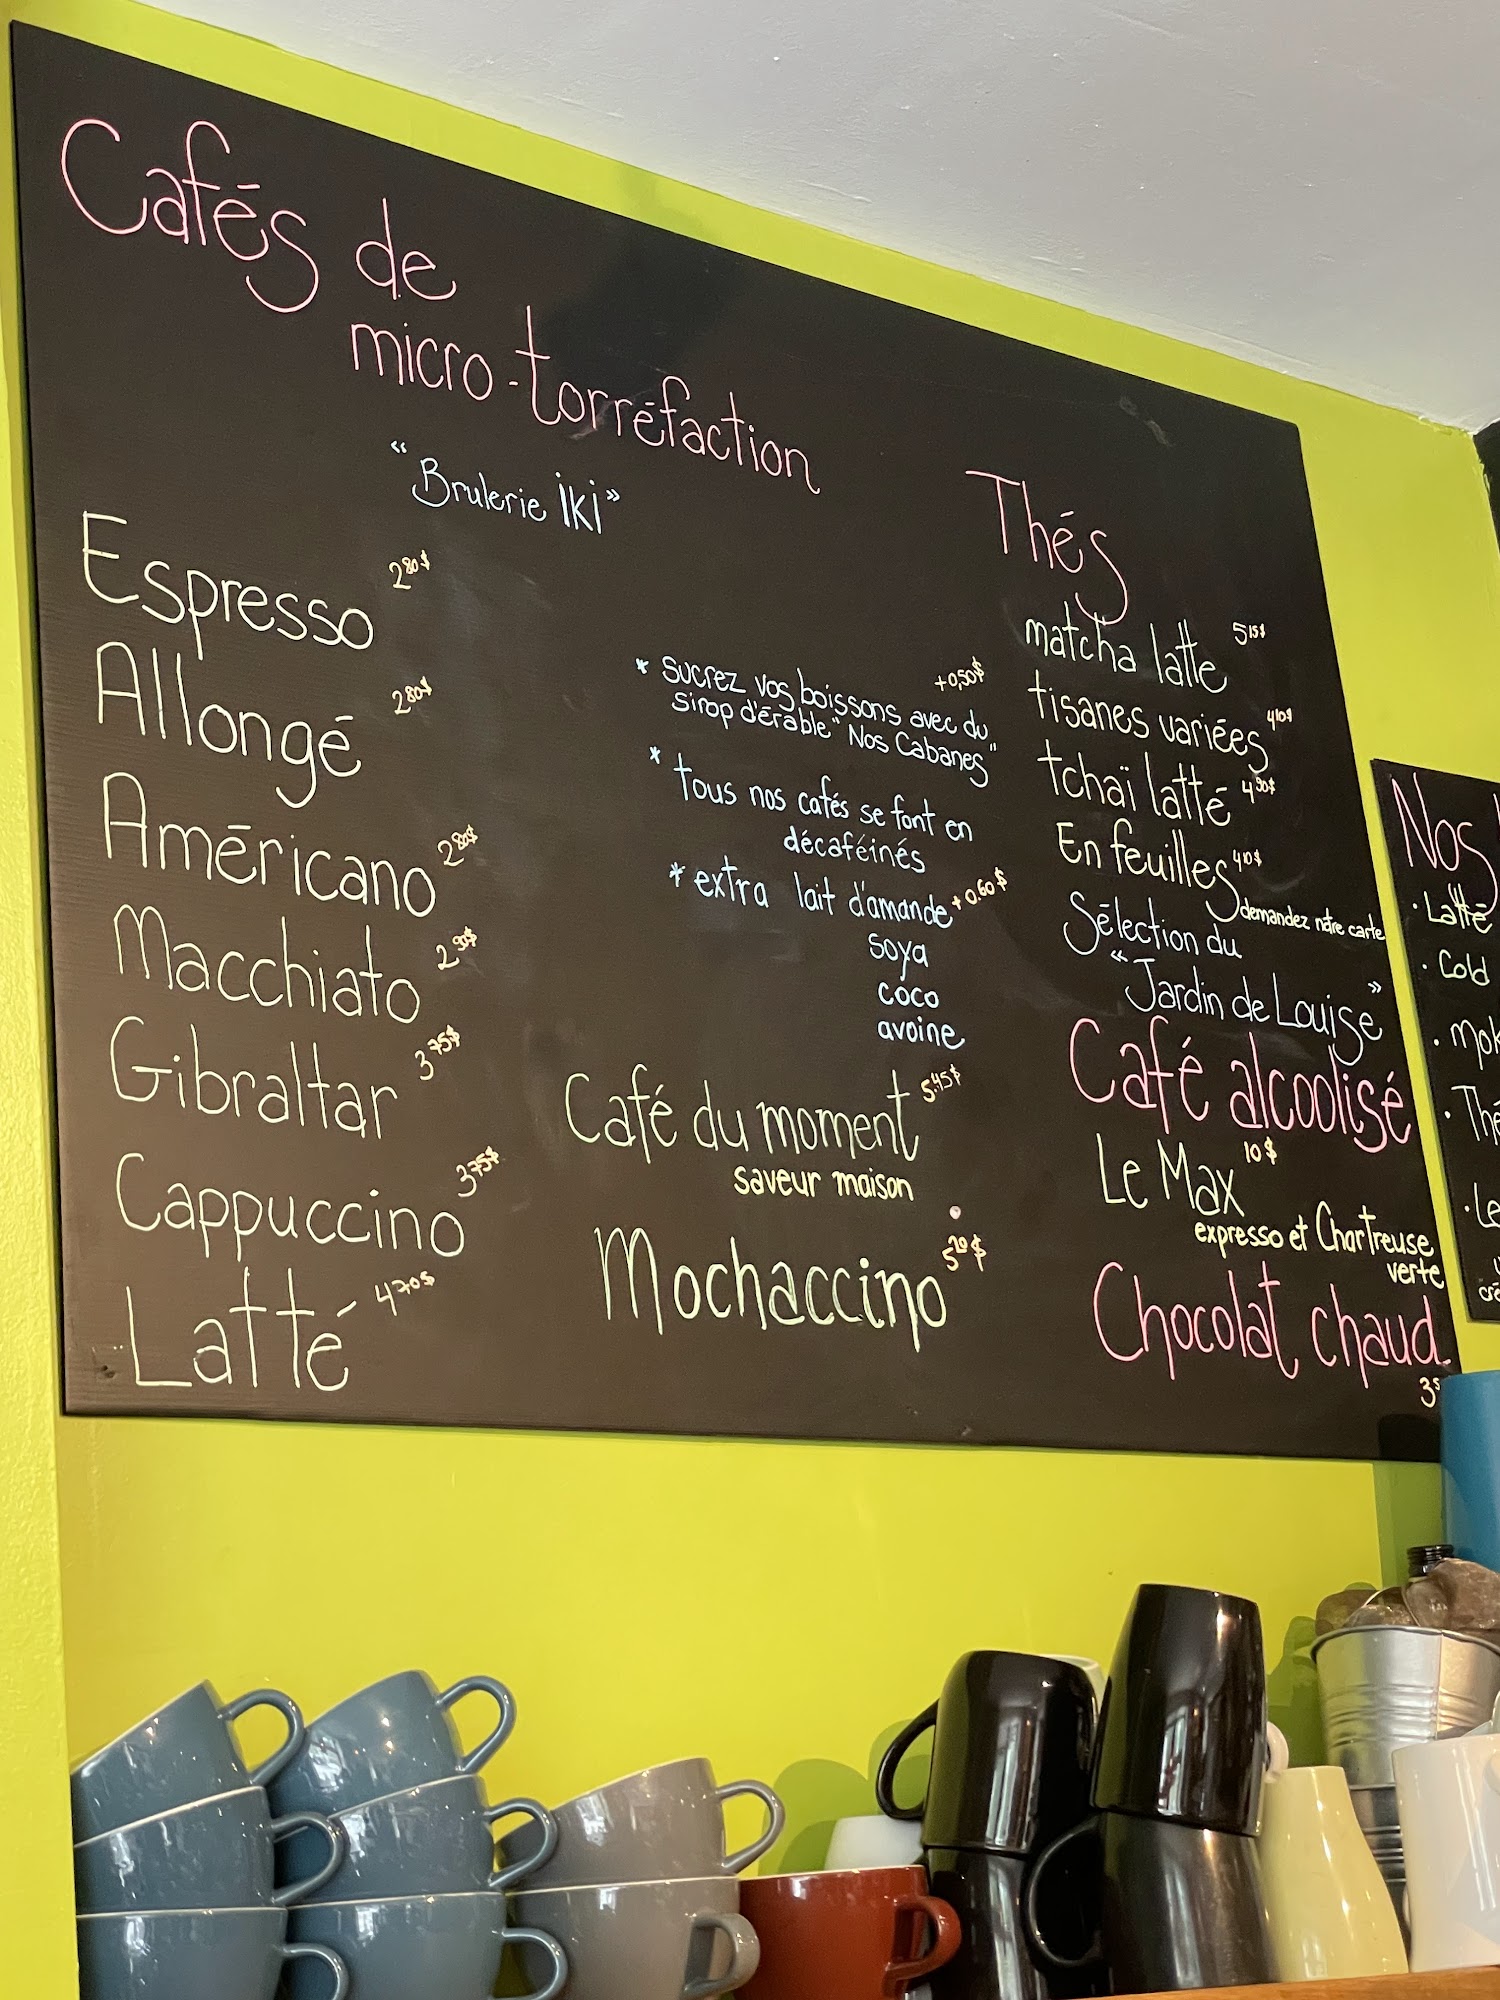 Cafés de
micro-torréfaction
"Brulerie iKi"
Espresso 2 80$
Allongé 2 80$
Américano 2 80$
Macchiato 2 90$
Gibraltar 3 75$
Cappuccino 3 75$
Latté 4 70$
+0,50$
* sucrez vos boissons avec du
sirop d'érable "Nos Cabanes"
* tous nos cafés se font en
décaféinés
* extra lait d'amande +0.60$
soya
coco
avoine
Café du moment 5.45$
saveur maison
Mochaccino 5 20$
Thés
matcha latte 5 15$
tisanes variées 4 10$
tchaï latté 4 90$
En feuilles 4 10$
demandez notre carte
Sélection du
"Jardin de Louise"
Café alcoolisé
Le Max 10$
expresso et Chartreuse
verte
Chocolat chaud
Nos
· Latté
· Cold